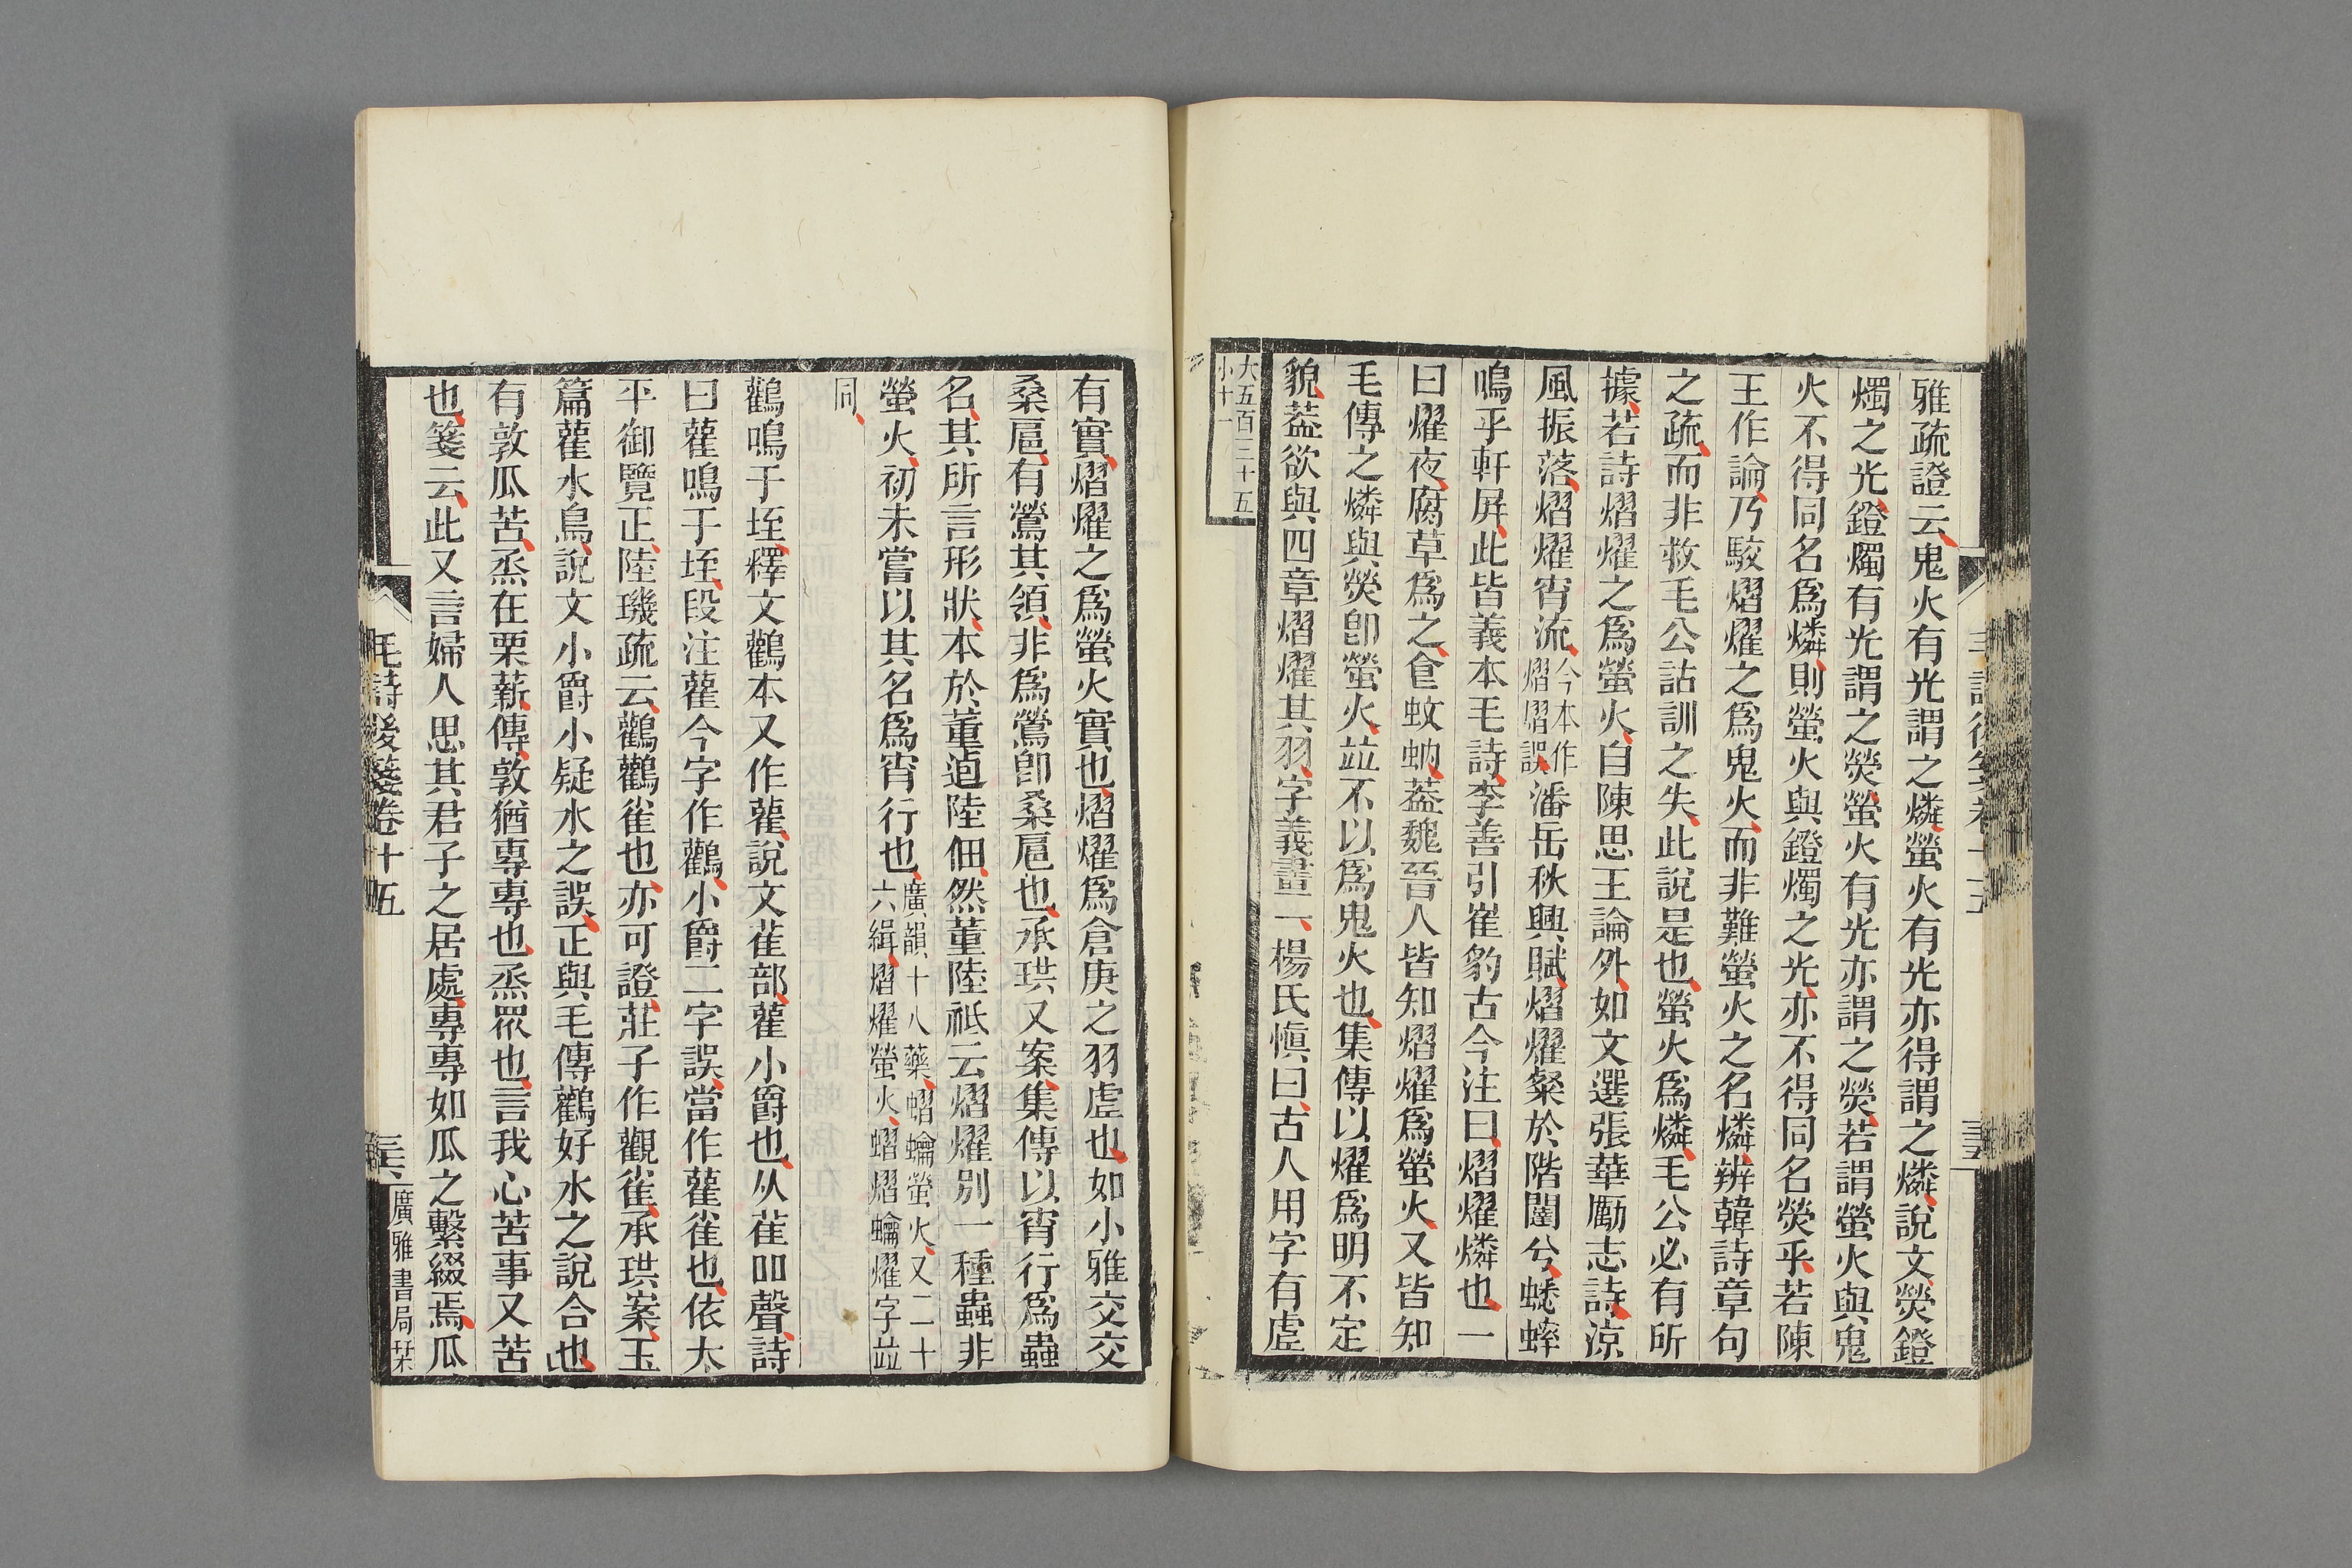 雅疏證云鬼火有光謂之燐螢火有光亦得謂之燐說文熒鐙
燭之光鐙燭有光謂之熒螢火有光亦謂之熒若謂螢火與鬼
火不得同名爲燐則螢火與鐙燭之光亦不得同名熒乎若陳
王作論乃駮熠燿之爲鬼火而非難螢火之名燐辨韓詩章句
之疏而非救毛公詁訓之失此說是也螢火爲燐毛公必有所
據若詩熠燿之爲螢火自陳思王論外如文選張華勵志詩涼
風振落熠燿宵流今本作熠熠誤潘岳秋興賦熠燿粲於階闥兮蟋蟀
鳴乎軒屏此皆義本毛詩李善引崔豹古今注曰熠燿燐也一
曰燿夜腐草爲之食蚊蚋葢魏晉人皆知熠燿爲螢火又皆知
毛傳之燐與熒卽螢火竝不以爲鬼火也集傳以燿爲明不定
貌葢欲與四章熠燿其羽字義畫一楊氏愼曰古人用字有虛
大五百三十五
小十一
有實熠燿之爲螢火實也熠燿爲倉庚之羽虛也如小雅交交
桑扈有鶯其領非爲鶯卽桑扈也承珙又案集傳以宵行爲蟲
名其所言形狀本於董逌陸佃然董陸祗云熠燿別一種蟲非
螢火初未嘗以其名爲宵行也廣韻十八藥蠮蠮螢火又二十六緝熠燿螢火熠熠蠮燿字竝
同
鸛鳴于垤釋文鸛本又作雚說文雈部雚小爵也从雈吅聲詩
曰雚鳴于垤段注雚今字作鸛小爵二字誤當作雚雀也依太
平御覽正陸璣疏云鸛鸛雀也亦可證莊子作觀雀承珙案玉
篇雚水鳥說文小爵小疑水之誤正與毛傳鸛好水之說合也
有敦瓜苦烝在栗薪傳敦猶專專也烝眾也言我心苦事又苦
也箋云此又言婦人思其君子之居處專專如瓜之繫綴焉瓜
毛詩後箋卷十五
三六
廣雅書局栞